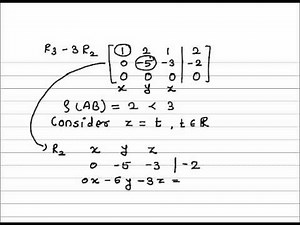 R₃ - 3R₂ [ 1 2 1 | 2
0 -5 -3 | -2
0 0 0 | 0 ]
x y z
ρ(AB) = 2 < 3
Consider z = t, t∈R
R₂ x y z
0 -5 -3 | -2
0x - 5y - 3z =